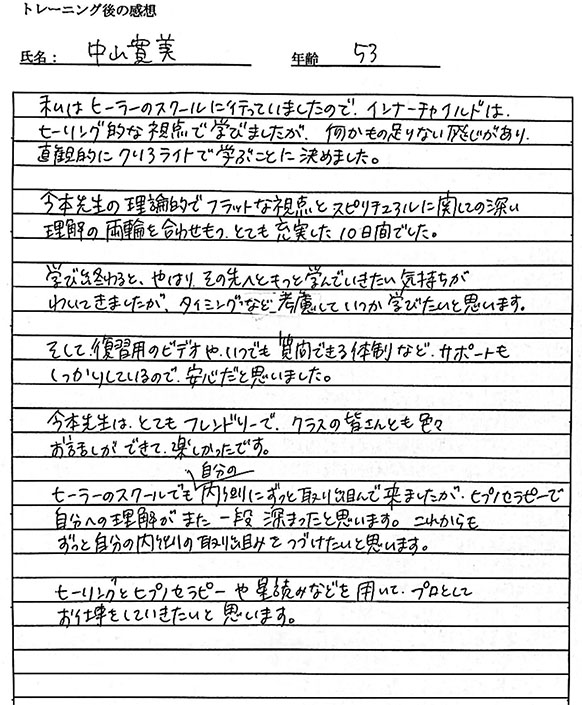 トレーニング後の感想
氏名： 中山寛美 年齢 53
私はヒーラーのスクールに行っていましたので、インナーチャイルドは、
ヒーリング的な視点で学びましたが、何かもの足りない感じがあり、
直観的にクリアライトで学ぶことに決めました。
今本先生の理論的でフラットな視点とスピリチュアルに関しての深い
理解の両輪を合わせもつ、とても充実した10日間でした。
学び終わると、やはり、その先へともっと学んでいきたい気持ちが
わいてきましたが、タイミングなど考慮していつか学びたいと思います。
そして、復習用のビデオや、いつでも質問できる体制など、サポートも
しっかりしているので、安心だと思いました。
今本先生は、とてもフレンドリーで、クラスの皆さんとも色々
お話しができて、楽しかったです。
自分の
ヒーラーのスクールでも内側にずっと取り組んで来ましたが、ヒプノセラピーで
自分への理解がまた一段深まったと思います。これからも
ずっと自分の内側の取り組みをつづけたいと思います。
ヒーリングとヒプノセラピーや星読みなどを用いて、プロとして
お仕事をしていきたいと思います。